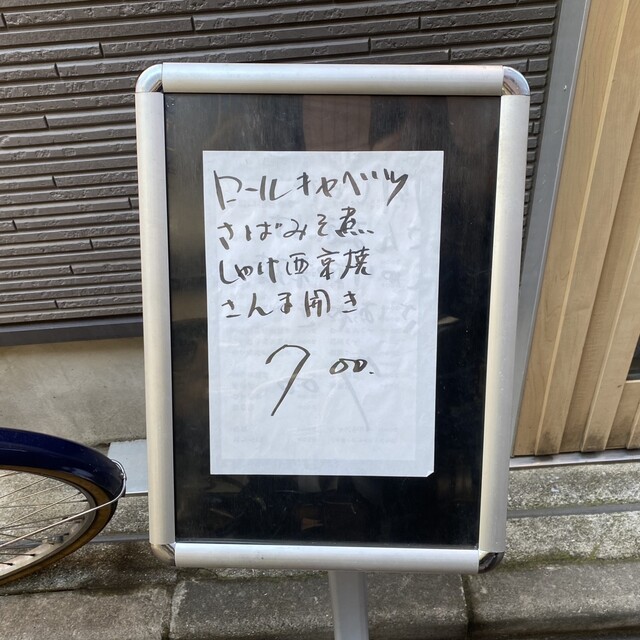 ロールキャベツ
さばみそ煮
しゃけ西京焼
さんま開き
700.